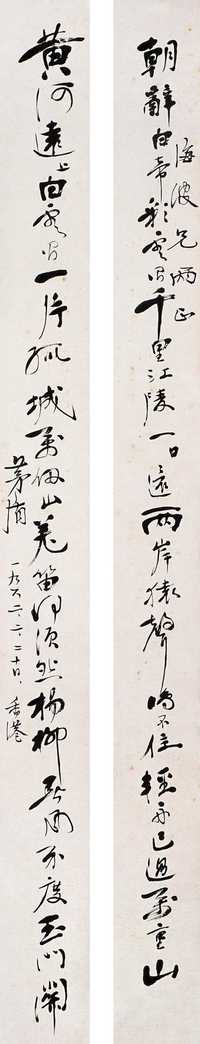 朝辭白帝彩雲間千里江陵一日還兩岸猿聲啼不住輕舟已過萬重山
海波兄兩正
黃河遠上白雲間一片孤城萬仞山羌笛何須怨楊柳春風不度玉門關
茅盾
一九六二.二.二十日.香港